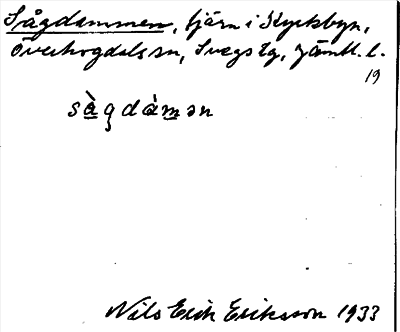 Sågdammen, tjärn i Kyrkbyn,
Överhogdals sn, Svegs tg, Jämtl. l.
19
sàgdàmən
Nils Erik Eriksson 1933